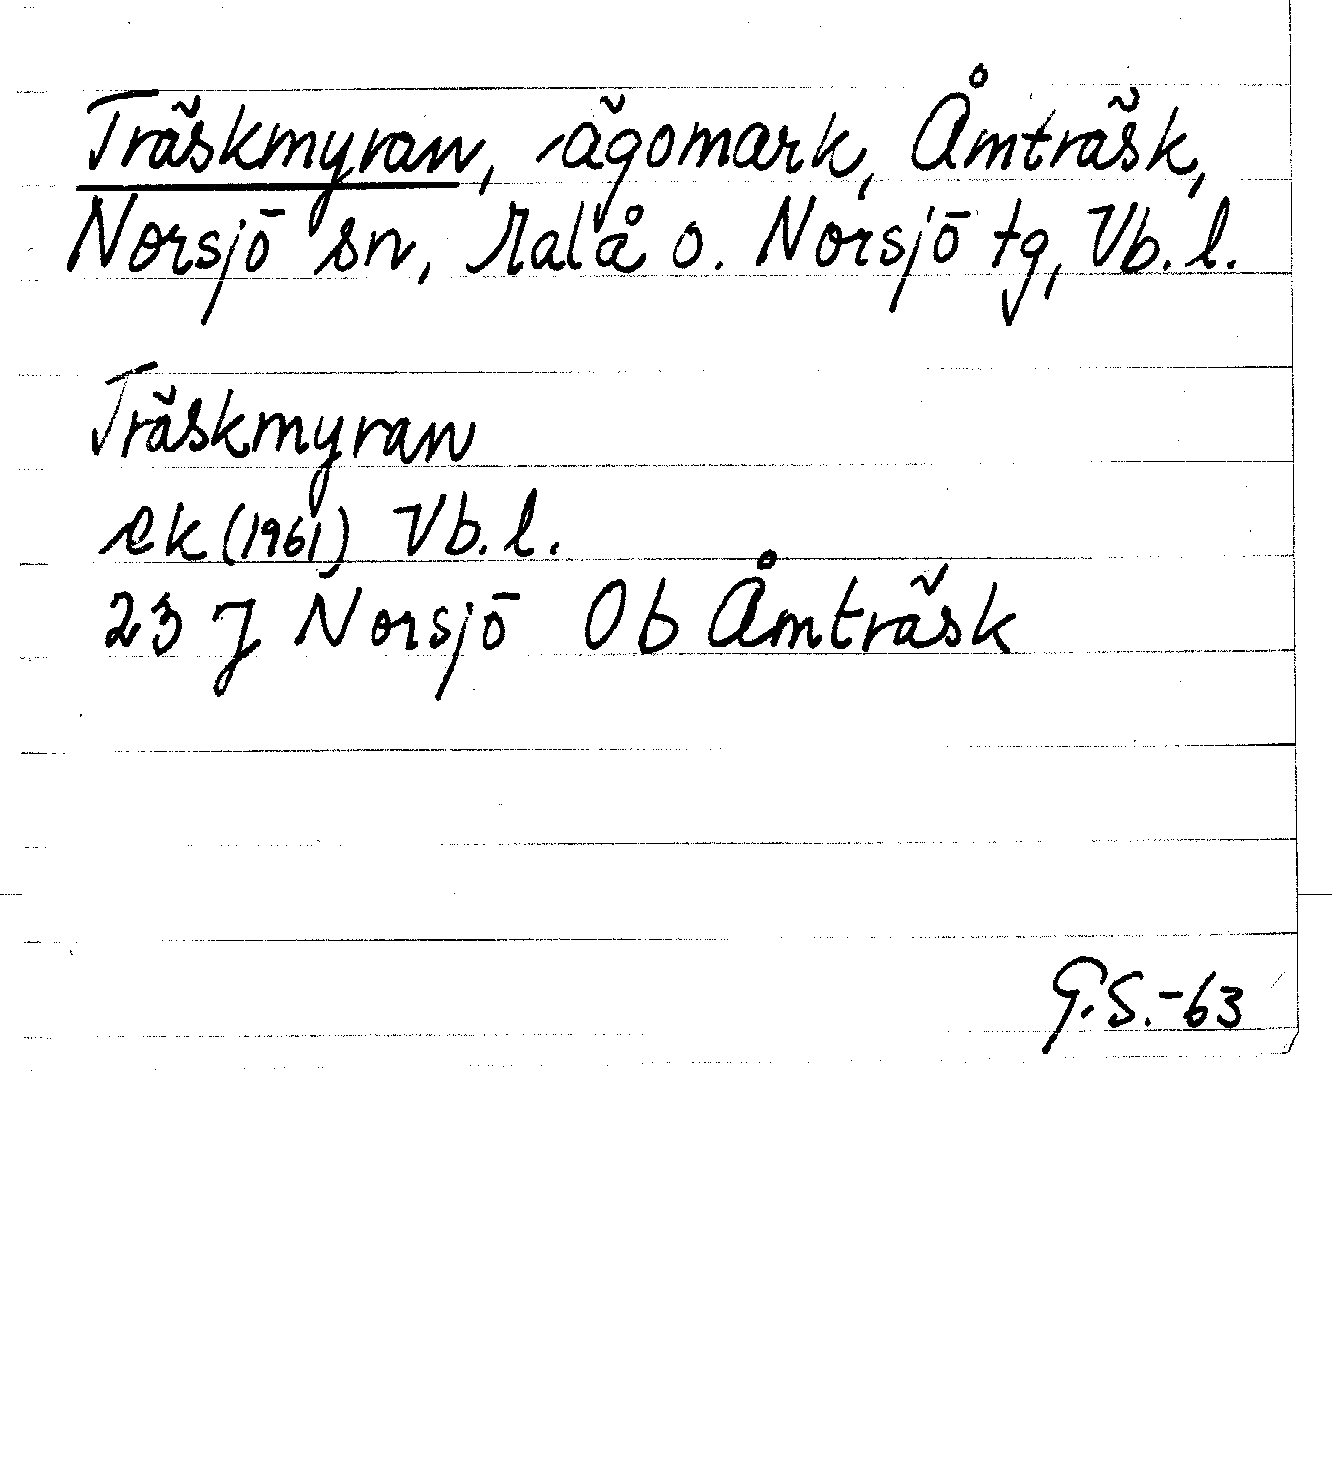 Träskmyran, ägomark, Åmträsk,
Norsjö sn, Malå o. Norsjö tg, Vb. l.
Träskmyran
ek (1961) Vb. l.
23 J Norsjö 0b Åmträsk
G.S.-63